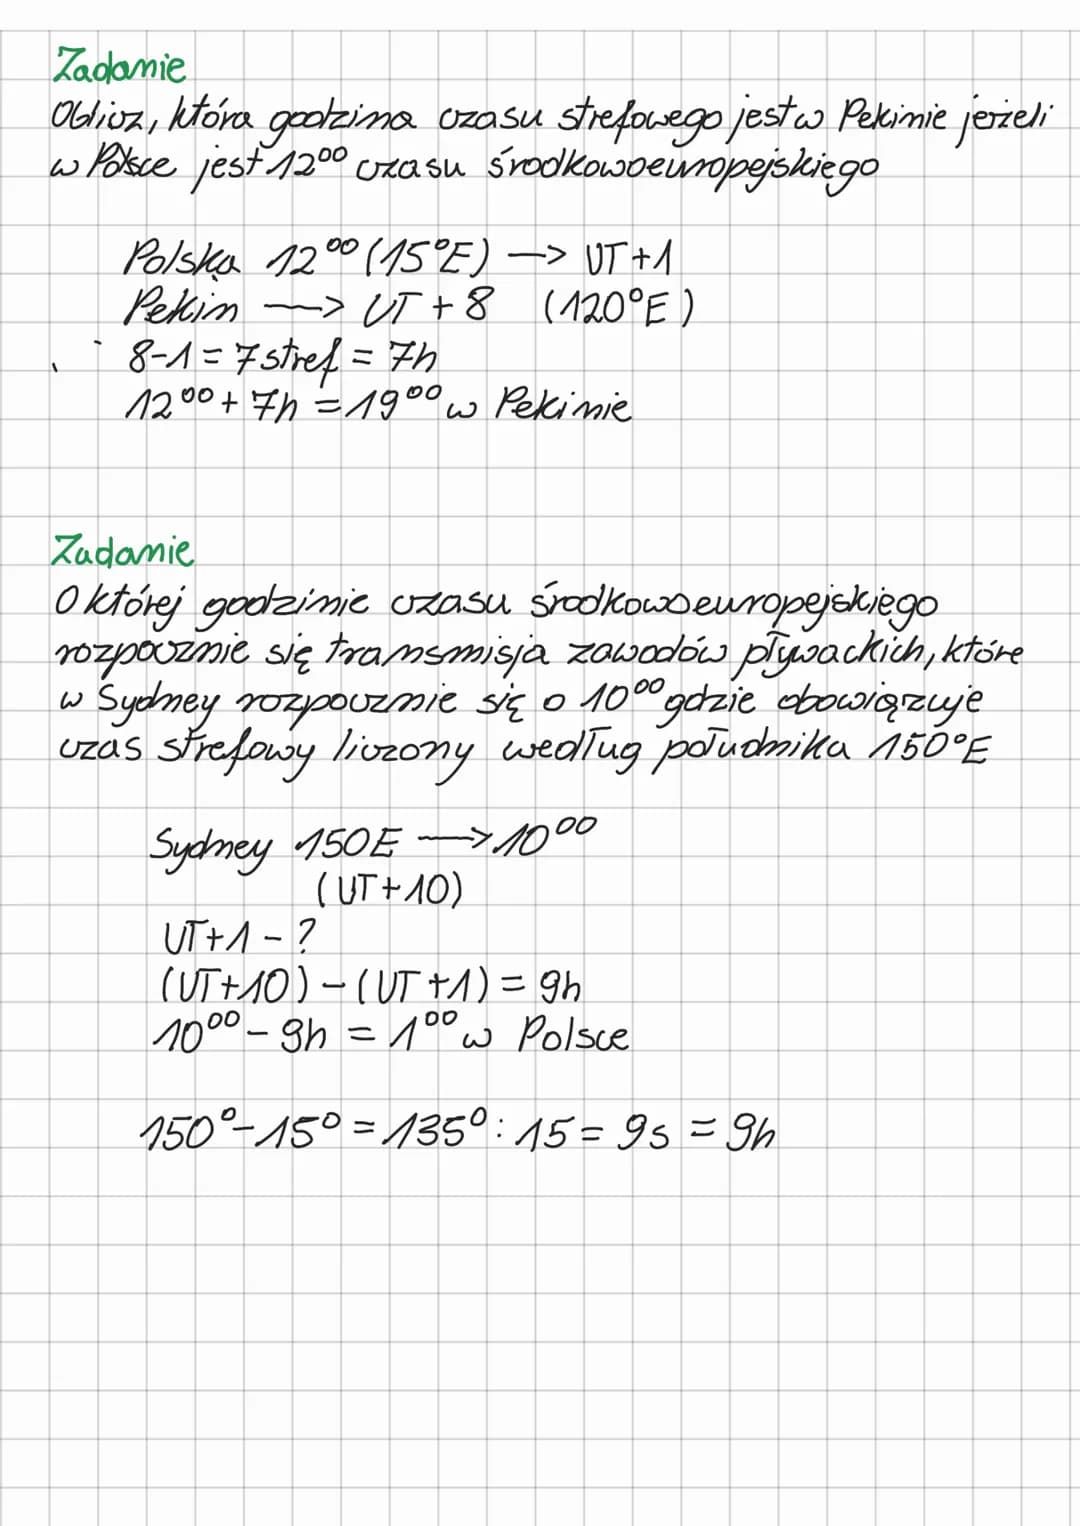 Zadanie
Oblicz, która godzina czasu strefowego jest w Pekinie jeżeli
w Polsce jest 12⁰⁰ czasu środkowoeuropejskiego
Polska 12⁰⁰ (15°E) —> UT+1
Pekin —> UT+8 (120°E)
8-1 = 7 stref = 7h
12⁰⁰ + 7h = 19⁰⁰ w Pekinie
Zadanie
O której godzinie czasu środkowoeuropejskiego
rozpocznie się transmisja zawodów pływackich, które
w Sydney rozpocznie się o 10⁰⁰ gdzie obowiązuje
czas strefowy liczony według południka 150°E
Sydney 150E —> 10⁰⁰
(UT+10)
UT+1 - ?
(UT+10) - (UT+1) = 9h
10⁰⁰ - 9h = 1⁰⁰ w Polsce
150° - 15° = 135° : 15 = 9s = 9h